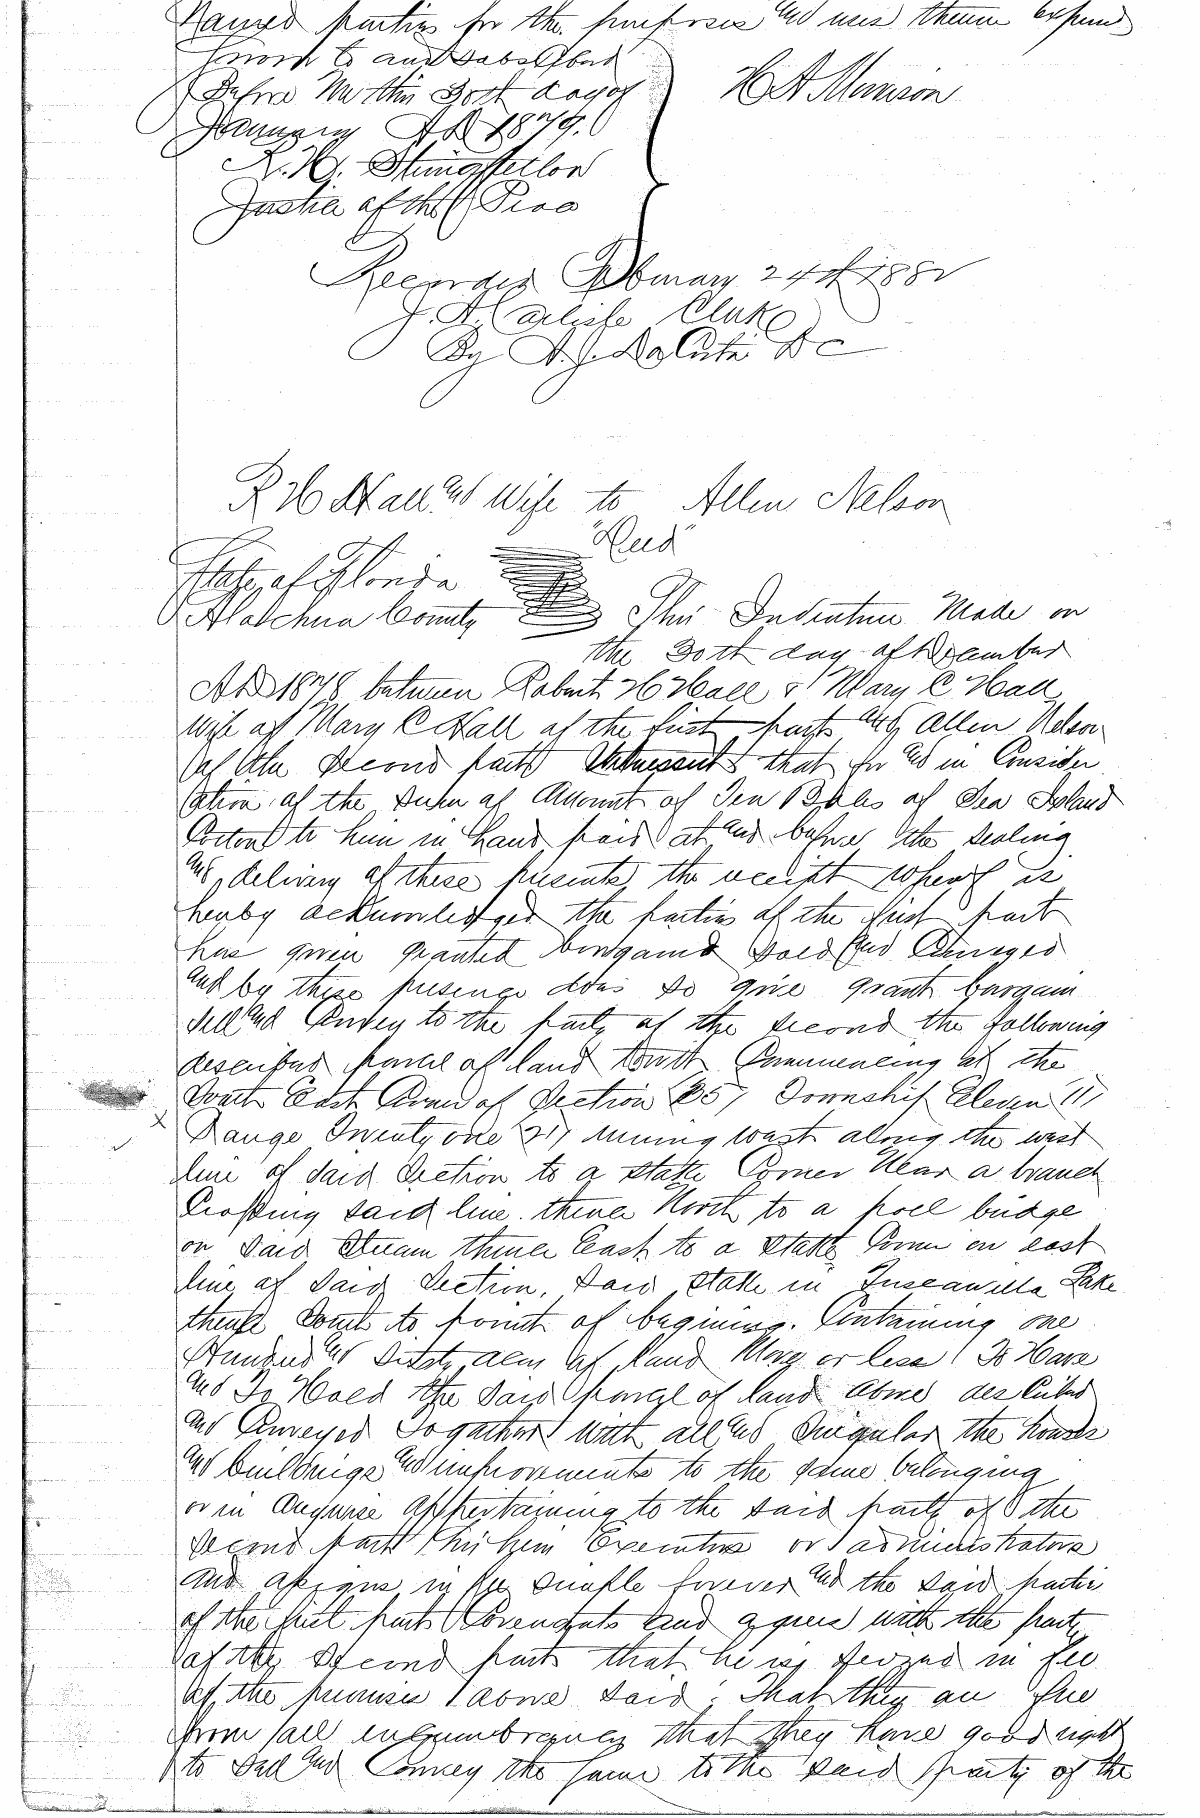 Named parties for the purposes and uses therein
Sworn to and Subscribed
Before Me this 30th day of
January AD 1879.
H A Merrison
Justice of the Peac
Recorded February 24th 1882
J. A. Carlisle Clerk
By DC
R H Hall and Wife to Allen Nelson
"Deed"
State of Florida
Alatchua County This Indenture Made on
the 30th day of December
AD 1878 between Robert H Hall & Mary C Hall
wife of Mary C Hall of the first part and Allen Nelson
of the Second part Witnesseth that for and in Consider
ation of the Sum of Amount of Ten Bales of Sea Island
Cotton to him in hand paid at and before the Sealing
and delivery of these presents the receipt whereof is
hereby acknowledged the parties of the first part
has given granted bargaind Sold and Conveyed
and by these presence does so give grant bargain
Sell and Convey to the party of the Second the following
described parcel of land towit Commencing at the
South East Corner of Section Township Eleven 11
Range Twenty one 21 running west along the west
line of Said Section to a Stake Corner Near a branch
Crossing said line. thence North to a pool bridge
on Said Stream thence East to a Stake Corner on east
line of Said Section, Said Stake in Tuscawilla Lake
thence South to point of begining. Containing one
Hundred and acres of land More or less To Have
and To Hold the Said parcel of land above described
and Conveyed Togather with all and Singular the houses
and buildings and improvements to the Same belonging
or in anywise appertaining to the Said party of the
Second part his heirs Executors or administrators
and assigns in fee Simple forever and the Said partie
of the first part Covenants and agrees with the party
of the Second part that he is Seized in fee
of the premises above Said. That they are free
from all encumbrances that they have good right
to Sell and Convey the Same to the Said party of the